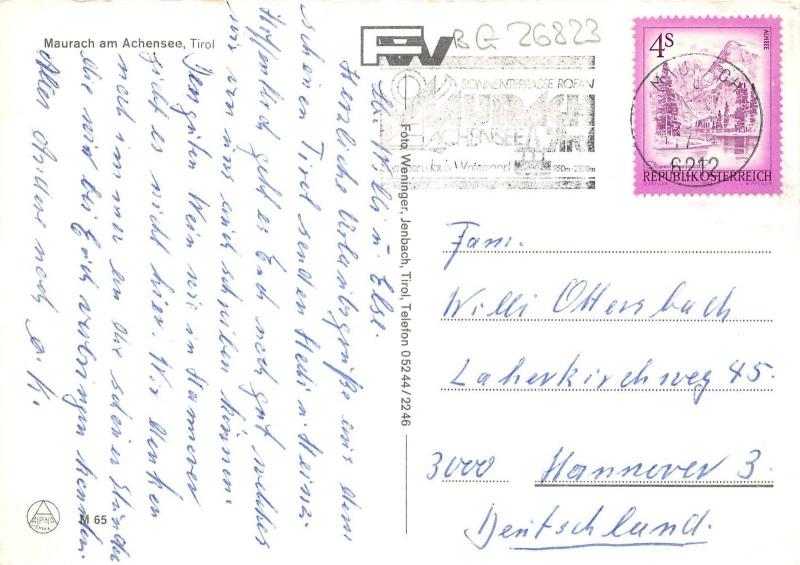 Maurach am Achensee, Tirol
BG 26823
SONNENTERRASSE ROFAN
MAURACH
ACHENSEE
950m-2300m
4S
ACHSEE
MAURACH
6212
REPUBLIK ÖSTERREICH
Ihr Willi u. Else.
Herzliche Urlaubsgrüße aus dem
schönen Tirol senden Hedi u. Heinz.
Hoffentlich geht es Euch noch gut, welches
wir von uns auch schreiben können.
Den guten Wein wie in Hannover
gibt es nicht hier. Wir denken
noch immer an die schönen Stunden
die wir bei Euch verbringen konnten.
Alles andere noch a. K.
Foto Weninger, Jenbach, Tirol, Telefon 05244/2246
Fam.
Willi Ottersbach
Laherkirchweg 45.
3000 Hannover 3.
Deutschland.
ALPINA
M 65